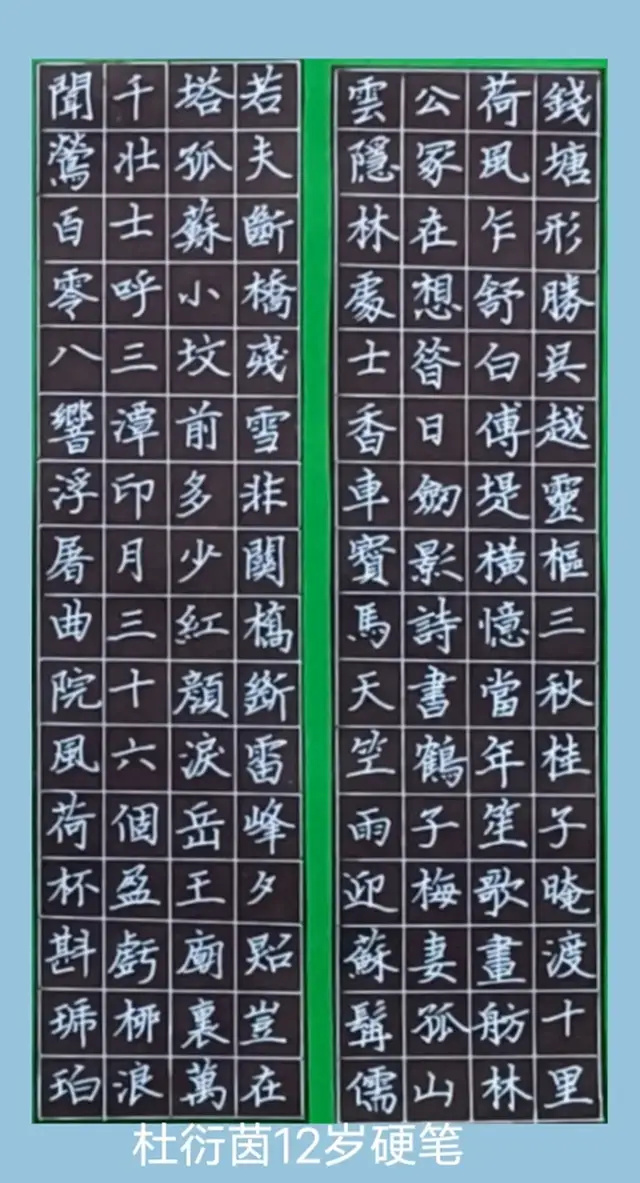 錢塘形勝吳越靈樞三秋桂子晻渡十里
荷風乍舒白傅堤橫憶當年笙歌畫舫林
公冢在想昝日劒影詩書鶴子梅妻孤山
雲隱林處士香車寳馬天竺雨迎蘇髯儒
若夫斷橋殘雪非關橋斷雷峰夕照豈在
塔孤蘇小墳前多少紅顔淚岳王廟裏萬
千壯士呼三潭印月三十六個盈虧柳浪
聞鶯百零八響浮屠曲院風荷杯斟琥珀
杜衍茵12岁硬笔